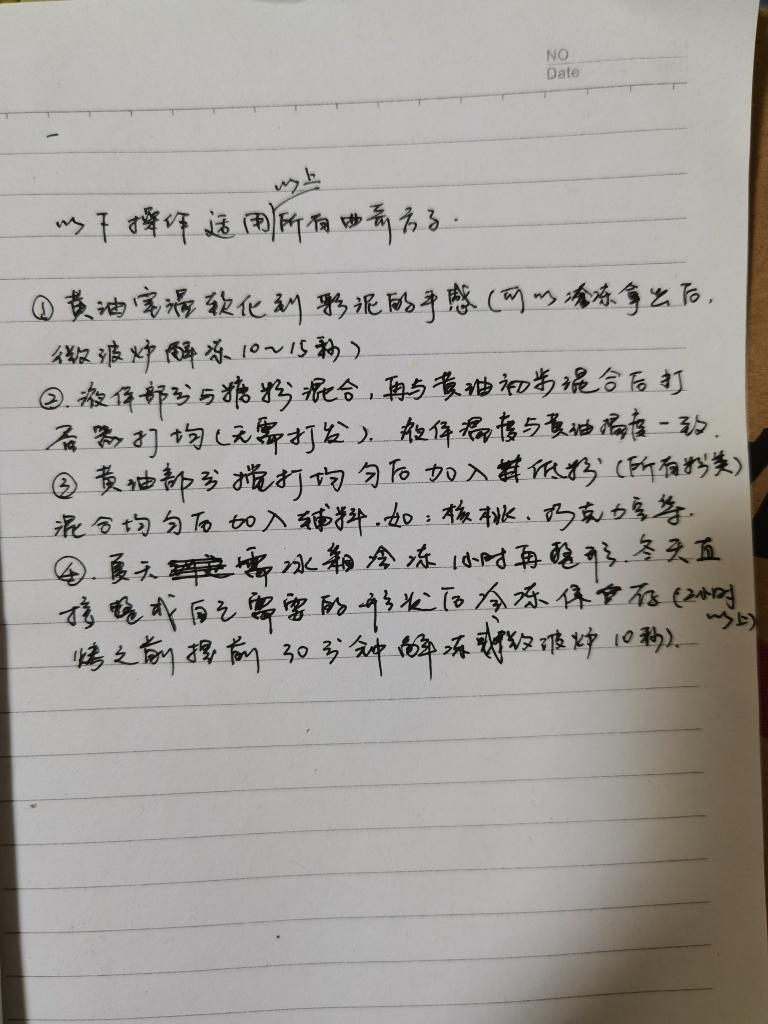 NO
Date
以上
以下操作适用所有曲奇方子.
① 黄油室温软化到彩泥的手感(可以冷冻拿出后,
微波炉解冻10~15秒)
②. 液体部分与糖粉混合,再与黄油初步混合后打
蛋器打均(无需打发). 液体温度与黄油温度一致.
③ 黄油部分搅打均匀后加入低粉(所有粉类)
混合均匀后加入辅料.如:核桃.巧克力豆等.
④. 夏天需冰箱冷冻1小时再整形.冬天直
接整成自己需要的形状后冷冻保存(2小时
以上)
烤之前提前30分钟解冻或微波炉10秒).